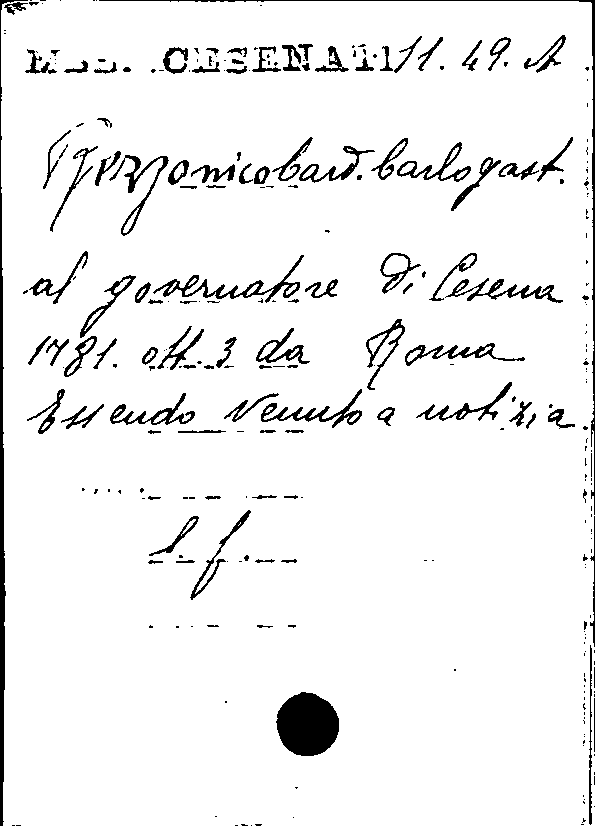 MSS. CESENATI 11. 49. A
Rezzonico Card. Carlo gast.
al governatore di Cesena
1781. ott. 3 da Roma
Essendo venuto a notizia
.....
l. f.